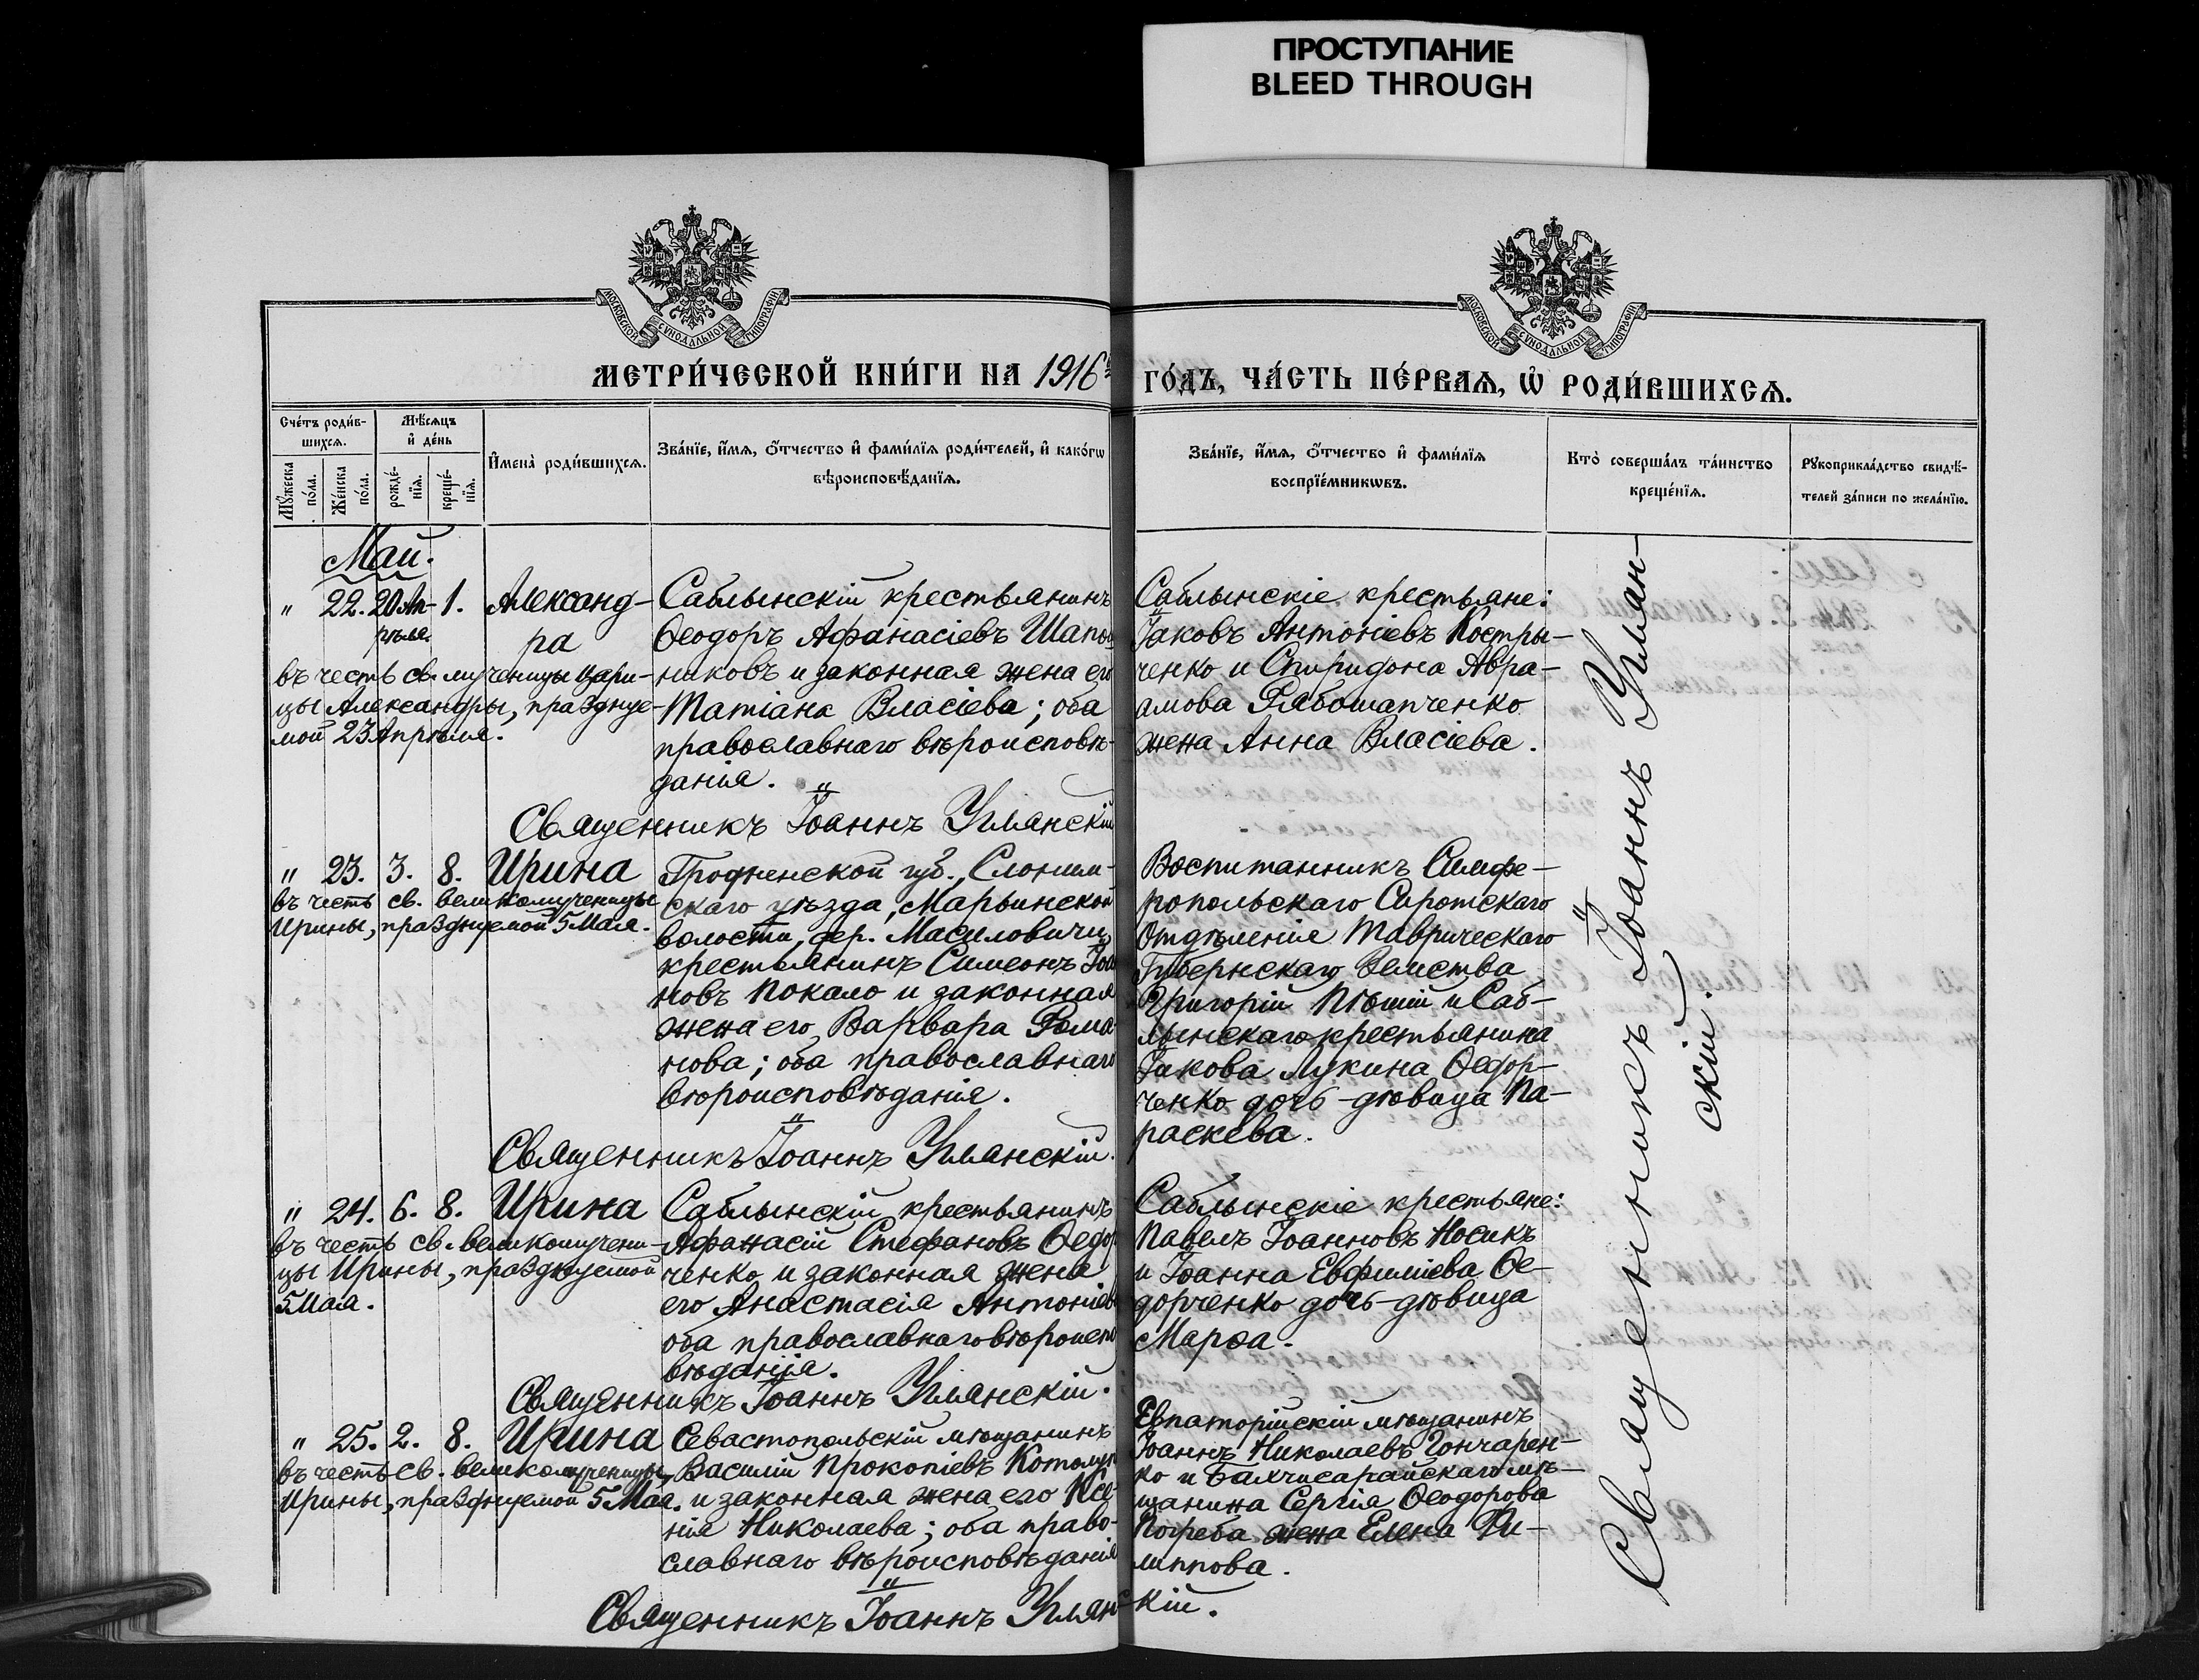 ПРОСТУПАНИЕ
BLEED THROUGH
МОСКОВСКОЙ СУНОДАЛЬНОЙ ТИПОГРАФІИ
МОСКОВСКОЙ СУНОДАЛЬНОЙ ТИПОГРАФІИ
МЕТРИ́ЧЕСКОЙ КНИ́ГИ НА 1916й ГО́ДЪ, ЧА́СТЬ ПЕ́РВАѦ, Ѡ҆ РОДИ́ВШИХСѦ.
Сче́тъ роди́в-
шихсѧ.
Мꙋ́жеска по́ла.
Же́нска по́ла.
Мѣ́сѧцъ
и҆ де́нь
рожде́-
нїѧ.
креще́-
нїѧ.
И҆мена̀ роди́вшихсѧ.
Зва́нїе, и҆́мѧ, ѻ҆́тчество и҆ фами́лїѧ роди́телей, и҆ како́гѡ
вѣроисповѣ́данїѧ.
Зва́нїе, и҆́мѧ, ѻ҆́тчество и҆ фами́лїѧ
воспрїе́мникѡвъ.
Кто̀ соверша́лъ та́инство
креще́нїѧ.
Рꙋкоприкла́дство свидѣ́-
телей за́писи по жела́нїю.
Май.
" 22. 20 Ап-
рѣля. 1. Александ-
ра
въ честь св. мученицы цари-
цы Александры, праздnуе-
мой 23 Апрѣля.
Саблынскій крестьянинъ
Ѳеодоръ Афанасіевъ Шапош
никовъ и законная жена его
Татіана Власіева; оба
православнаго вѣроисповѣ-
данія.
Саблынскіе крестьяне:
Іаковъ Антоніевъ Костры-
ченко и Спиридона Авра-
амова Рябошапченко
жена Анна Власіева.
Священникъ Іоаннъ Уманскій
" 23. 3. 8. Ирина
въ честь св. великомученицы
Ирины, празднуемой 5 Мая.
Гродненской губ., Слоним-
скаго уѣзда, Марьинской
волости, дер. Масиловичи
крестьянинъ Симеонъ Іоан
новъ Покало и законная
жена его Варвара Рома
нова; оба православнаго
вѣроисповѣданія.
Воспитанникъ Симфе-
ропольскаго Сиротскаго
Отдѣленія Таврическаго
Губернскаго Земства
Григорій Пѣшій и Саб-
лынскаго крестьянина
Іакова Лукина Ѳедор-
ченко дочь-дѣвица Па-
раскева.
Священникъ Іоаннъ Уманскій.
" 24. 6. 8. Ирина
въ честь св. великомучени-
цы Ирины, празднуемой
5 Мая.
Саблынскій крестьянинъ
Афанасій Стефановъ Ѳедор
ченко и законная жена
его Анастасія Антоніева
оба православнаго вѣроиспо
вѣданія.
Саблынскіе крестьяне:
Павелъ Іоанновъ Носикъ
и Іоанна Евфиміева Ѳе-
дорченко дочь-дѣвица
Марѳа.
Священникъ Іоаннъ Уманскій.
" 25. 2. 8. Ирина
въ честь св. великомученицы
Ирины, празднуемой 5 Мая.
Севастопольскій мѣщанинъ
Василій Прокопіевъ
и законная жена его Ксе-
нія Николаева; оба право-
славнаго вѣроисповѣданія
Евпаторійскій мѣщанинъ
Іоаннъ Николаевъ Гончарен-
ко и Бахчисарайскаго мѣ-
щанина Сергія Ѳеодорова
Погреба жена Елена Фи-
липпова.
Священникъ Іоаннъ Уманскій.
Священникъ Іоаннъ Уман-
скій.